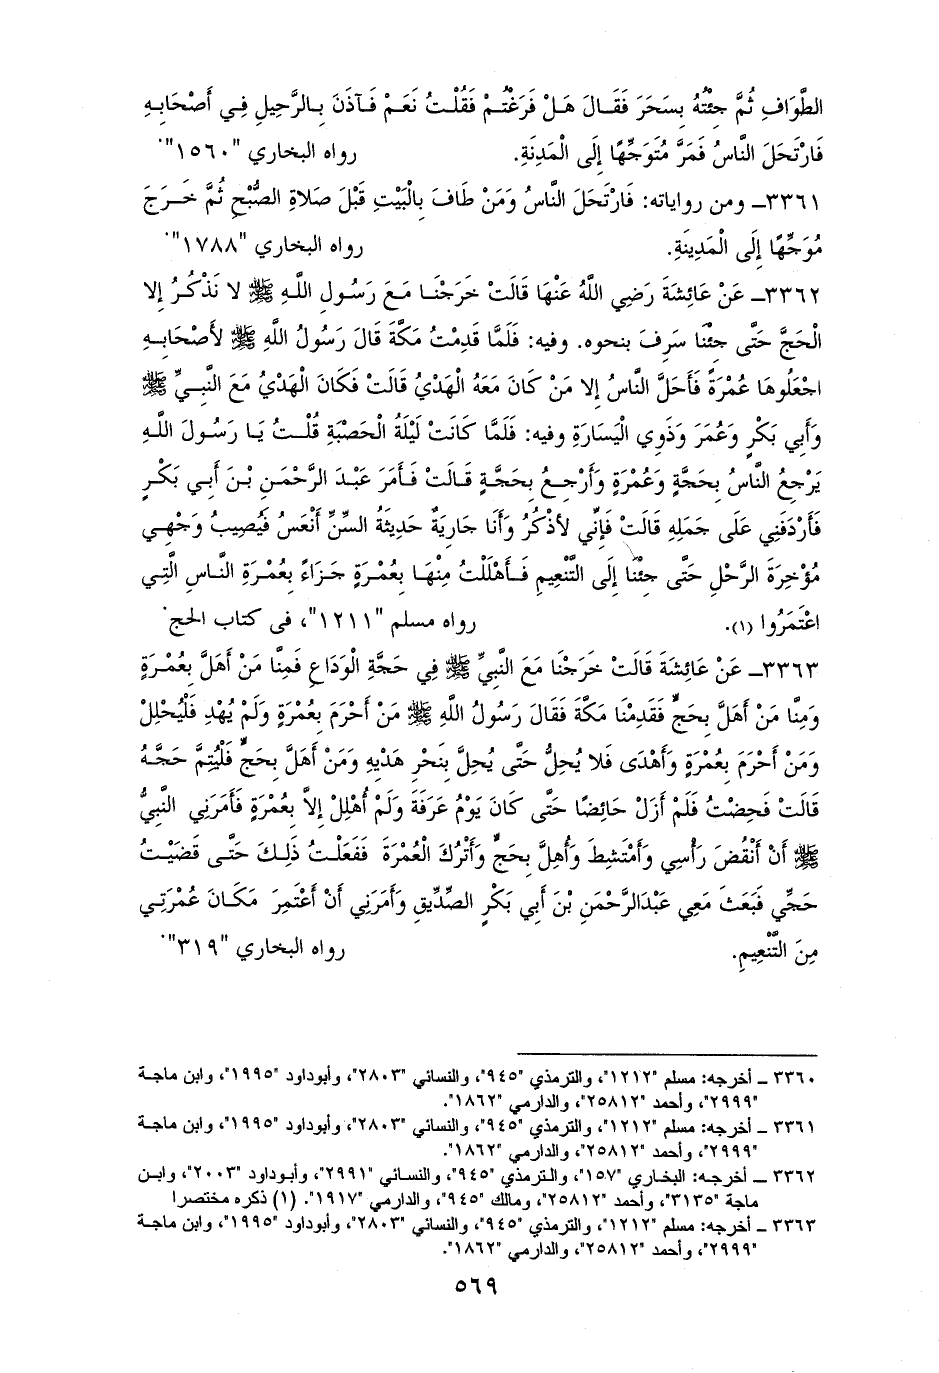 الطَّوَافِ ثُمَّ جِئْتُهُ بِسَحَرَ فَقَالَ هَلْ فَرَغْتُمْ فَقُلْتُ نَعَمْ فَآذَنَ بِالرَّحِيلِ فِي أَصْحَابِهِ
فَارْتَحَلَ النَّاسُ فَمَرَّ مُتَوَجِّهًا إِلَى الْمَدِنَةِ. رواه البخاري "١٥٦٠".
٣٣٦١ـ ومن رواياته: فَارْتَحَلَ النَّاسُ وَمَنْ طَافَ بِالْبَيْتِ قَبْلَ صَلَاةِ الصُّبْحِ ثُمَّ خَرَجَ
مُوَجِّهًا إِلَى الْمَدِينَةِ. رواه البخاري "١٧٨٨".
٣٣٦٢ـ عَنْ عَائِشَةَ رَضِي اللَّهُ عَنْهَا قَالَتْ خَرَجْنَا مَعَ رَسُولِ اللَّهِ ﷺ لا نَذْكُرُ إِلا
الْحَجَّ حَتَّى جِئْنَا سَرِفَ بنحوه. وفيه: فَلَمَّا قَدِمْتُ مَكَّةَ قَالَ رَسُولُ اللَّهِ ﷺ لأَصْحَابِهِ
اجْعَلُوهَا عُمْرَةً فَأَحَلَّ النَّاسُ إِلا مَنْ كَانَ مَعَهُ الْهَدْيُ قَالَتْ فَكَانَ الْهَدْيُ مَعَ النَّبِيِّ ﷺ
وَأَبِي بَكْرٍ وَعُمَرَ وَذَوِي الْيَسَارَةِ وفيه: فَلَمَّا كَانَتْ لَيْلَةُ الْحَصْبَةِ قُلْتُ يَا رَسُولَ اللَّهِ
يَرْجِعُ النَّاسُ بِحَجَّةٍ وَعُمْرَةٍ وَأَرْجِعُ بِحَجَّةٍ قَالَتْ فَأَمَرَ عَبْدَ الرَّحْمَنِ بْنَ أَبِي بَكْرٍ
فَأَرْدَفَنِي عَلَى جَمَلِهِ قَالَتْ فَإِنِّي لأَذْكُرُ وَأَنَا جَارِيَةٌ حَدِيثَةُ السِّنِّ أَنْعَسُ فَيُصِيبُ وَجْهِي
مُؤْخِرَةَ الرَّحْلِ حَتَّى جِئْنَا إِلَى التَّنْعِيمِ فَأَهْلَلْتُ مِنْهَا بِعُمْرَةٍ جَزَاءً بِعُمْرَةِ النَّاسِ الَّتِي
اعْتَمَرُوا (١). رواه مسلم "١٢١١"، فى كتاب الحج.
٣٣٦٣ـ عَنْ عَائِشَةَ قَالَتْ خَرَجْنَا مَعَ النَّبِيِّ ﷺ فِي حَجَّةِ الْوَدَاعِ فَمِنَّا مَنْ أَهَلَّ بِعُمْرَةٍ
وَمِنَّا مَنْ أَهَلَّ بِحَجٍّ فَقَدِمْنَا مَكَّةَ فَقَالَ رَسُولُ اللَّهِ ﷺ مَنْ أَحْرَمَ بِعُمْرَةٍ وَلَمْ يُهْدِ فَلْيُحْلِلْ
وَمَنْ أَحْرَمَ بِعُمْرَةٍ وَأَهْدَى فَلا يُحِلُّ حَتَّى يُحِلَّ بِنَحْرِ هَدْيِهِ وَمَنْ أَهَلَّ بِحَجٍّ فَلْيُتِمَّ حَجَّهُ
قَالَتْ فَحِضْتُ فَلَمْ أَزَلْ حَائِضًا حَتَّى كَانَ يَوْمُ عَرَفَةَ وَلَمْ أُهْلِلْ إِلاَّ بِعُمْرَةٍ فَأَمَرَنِي النَّبِيُّ
ﷺ أَنْ أَنْقُضَ رَأْسِي وَأَمْتَشِطَ وَأُهِلَّ بِحَجٍّ وَأَتْرُكَ الْعُمْرَةَ فَفَعَلْتُ ذَلِكَ حَتَّى قَضَيْتُ
حَجِّي فَبَعَثَ مَعِي عَبْدَالرَّحْمَنِ بْنَ أَبِي بَكْرٍ الصِّدِّيقِ وَأَمَرَنِي أَنْ أَعْتَمِرَ مَكَانَ عُمْرَتِي
مِنَ التَّنْعِيمِ. رواه البخاري "٣١٩".
٣٣٦٠ ـ أخرجه: مسلم "١٢١٢"، والترمذي "٩٤٥"، والنسائي "٢٨٠٣"، وأبوداود "١٩٩٥"، وابن ماجة
"٢٩٩٩"، وأحمد "٢٥٨١٢"، والدارمي "١٨٦٢".
٣٣٦١ ـ أخرجه: مسلم "١٢١٢"، والترمذي "٩٤٥"، والنسائي "٢٨٠٣"، وأبوداود "١٩٩٥"، وابن ماجة
"٢٩٩٩"، وأحمد "٢٥٨١٢"، والدارمي "١٨٦٢".
٣٣٦٢ ـ أخرجه: البخاري "١٥٧"، والترمذي "٩٤٥"، والنسائي "٢٩٩١"، وأبوداود "٢٠٠٣"، وابن
ماجة "٣١٣٥"، وأحمد "٢٥٨١٢"، ومالك "٩٤٥"، والدارمي "١٩١٧". (١) ذكره مختصرا
٣٣٦٣ ـ أخرجه: مسلم "١٢١٢"، والترمذي "٩٤٥"، والنسائي "٢٨٠٣"، وأبوداود "١٩٩٥"، وابن ماجة
"٢٩٩٩"، وأحمد "٢٥٨١٢"، والدارمي "١٨٦٢".
٥٦٩